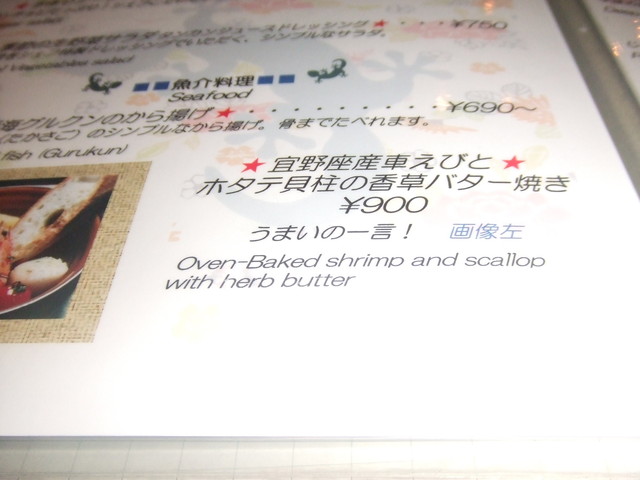 サラダ シークワサージュースドレッシング★・・・¥750
ドレッシングでいただく、シンプルなサラダ。
Vegetables salad
■■魚介料理■■
Seafood
グルクンのから揚げ★・・・・・・・・・・¥690～
(たかさご)のシンプルなから揚げ。骨までたべれます。
fish (Gurukun)
★宜野座産車えびと★
ホタテ貝柱の香草バター焼き
¥900
うまいの一言！ 画像左
Oven-Baked shrimp and scallop
with herb butter